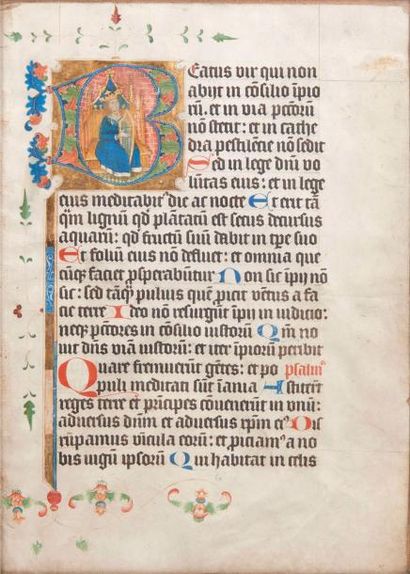 Beatus vir qui non
abijt in cōsilio īpio
rū. et in via pctorū
nō stetit: et in cathe
dra pestilēne nō sedit
Sed in lege dn̄i vo
lūtas eius: et in lege
eius meditabitʳ die ac nocte Et erit tā
q̄m lignum qd̄ plantatū est secus decursus
aquarū: qd̄ fructū suū dabit in tp̄e suo
Et foliū eius nō defluet: et omnia que
cūq; faciet ꝓsperabūtur Non sic īpij nō
sic: sed tāq̄ puluis quē ꝓicit vētus a fa
cie terre Ideo nō resurgūt īpij in iudicio:
neq; pctores in cōsilio iustorū Qm̄ no
uit dn̄s viā iustorū: et iter īpiorum peribit
Quare fremuerūt gētes: et po psalm⁹
puli meditati sūt īania Astiterūt
reges terre et prīcipes cōvenerūt in vnū:
adversus dn̄m et adversus xp̄m ei⁹ Dis
rūpamus vīcula eorū: et ꝓiciam⁹ a no
bis iugū ipsorū Qui habitat in celis